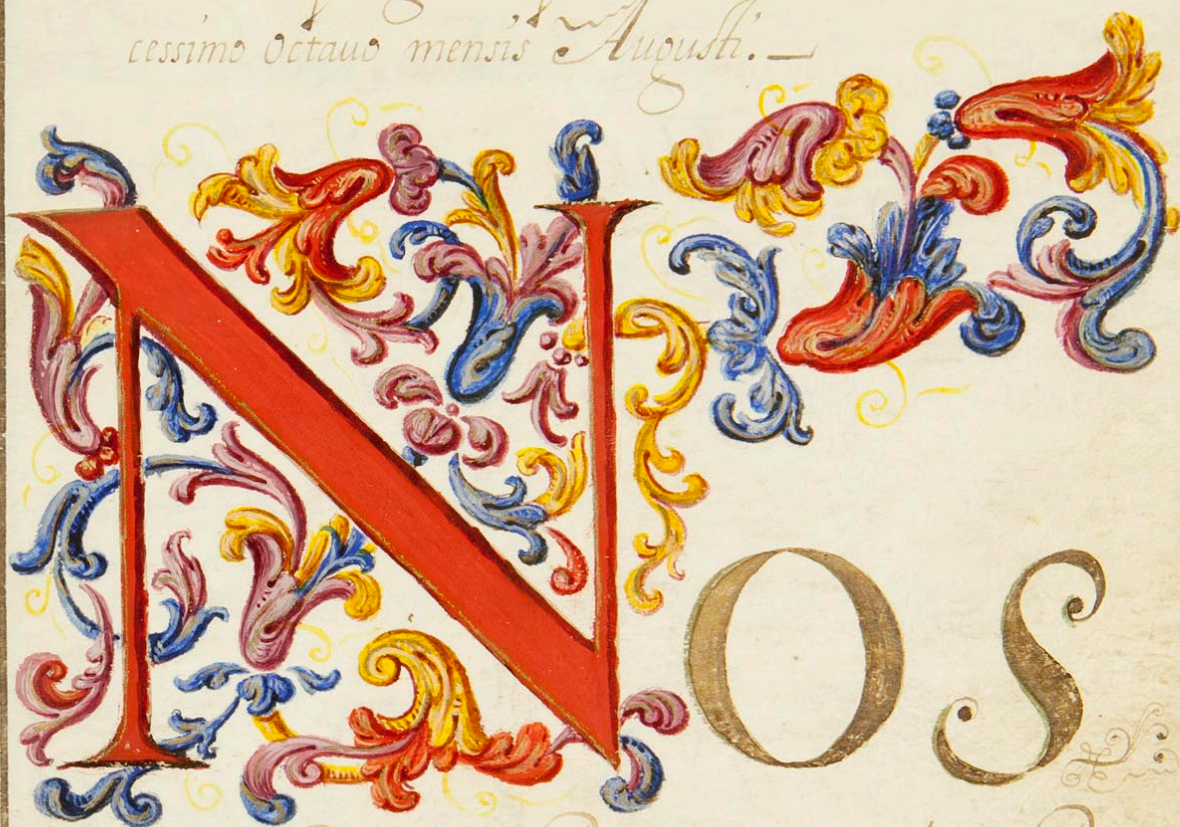 cessimo Octavo mensis Augusti.
NOS